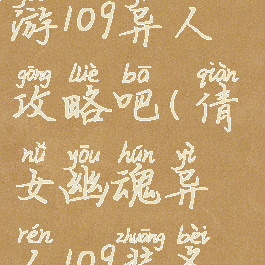 游109异人
gōng lüè bā qiàn
攻略吧(倩
nǚ yōu hún yì
女幽魂异
rén zhuāng bèi
人109装备